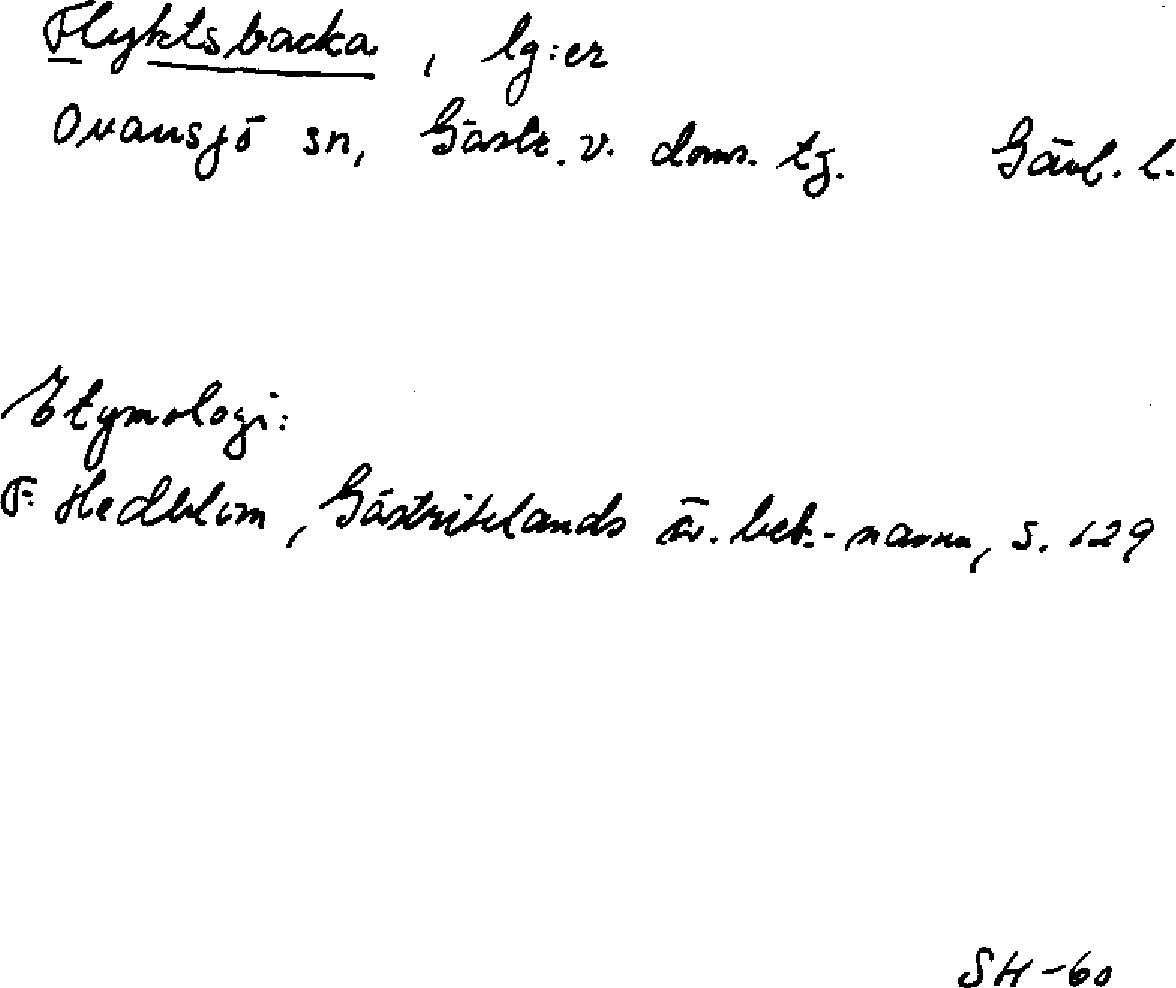 Flyktsbacka, lg:er
Ovansjö sn, Gästr. v. doms. tg. Gävl. l.
Etymologi:
F. Hedblom, Gästriklands äv. beb.-namn, s. 129
SH-60